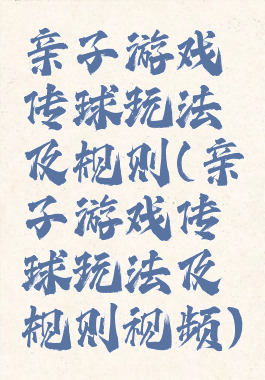 亲子游戏
传球玩法
及规则(亲
子游戏传
球玩法及
规则视频)